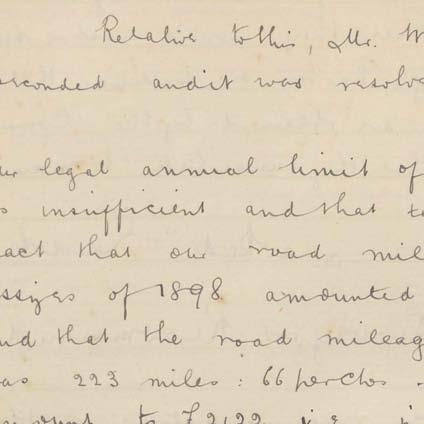 Relative to this, Mr. W
seconded and it was resolv
legal annual limit of
insufficient and that t
act that our road mil
ssizes of 1898 amounted
nd that the road mileag
as 223 miles: 66 perches
to £2122 i.e.